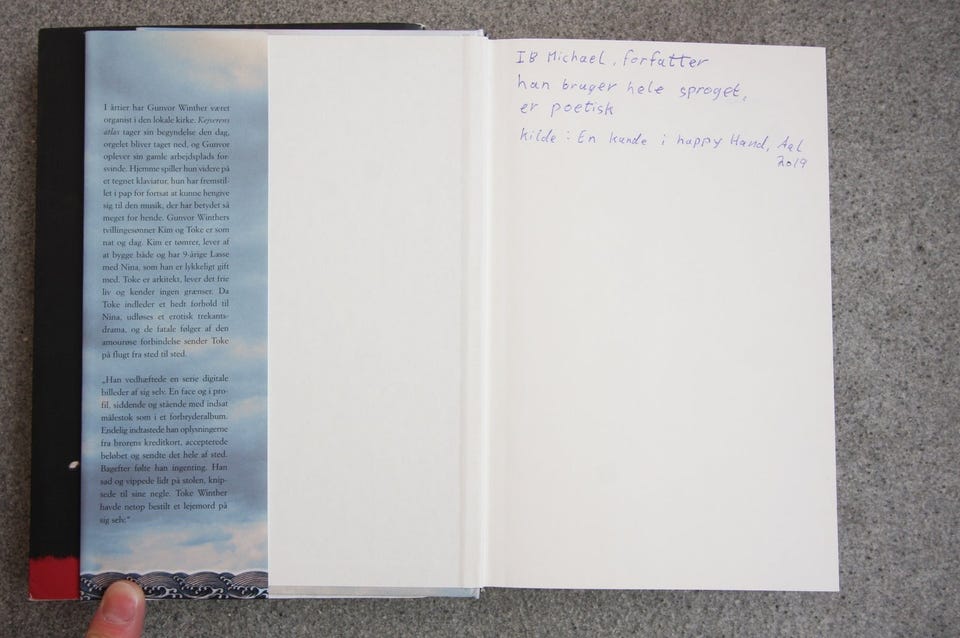 I årtier har Gunvor Winther været
organist i den lokale kirke. Kejserens
atlas tager sin begyndelse den dag,
orgelet bliver taget ned, og Gunvor
oplever sin gamle arbejdsplads for-
svinde. Hjemme spiller hun videre på
et tegnet klaviatur, hun har fremstil-
let i pap for fortsat at kunne hengive
sig til den musik, der har betydet så
meget for hende. Gunvor Winthers
tvillingesønner Kim og Toke er som
nat og dag. Kim er tømrer, lever af
at bygge både og har 9-årige Lasse
med Nina, som han er lykkeligt gift
med. Toke er arkitekt, lever det frie
liv og kender ingen grænser. Da
Toke indleder et hedt forhold til
Nina, udløses et erotisk trekants-
drama, og de fatale følger af den
amourøse forbindelse sender Toke
på flugt fra sted til sted.
„Han vedhæftede en serie digitale
billeder af sig selv. En face og i pro-
fil, siddende og stående med indsat
målestok som i et forbryderalbum.
Endelig indtastede han oplysningerne
fra brorens kreditkort, accepterede
beløbet og sendte det hele af sted.
Bagefter følte han ingenting. Han
sad og vippede lidt på stolen, knip-
sede til sine negle. Toke Winther
havde netop bestilt et lejemord på
sig selv."
IB Michael, forfatter
han bruger hele sproget,
er poetisk
kilde: En kunde i happy Hand, Aal
2019